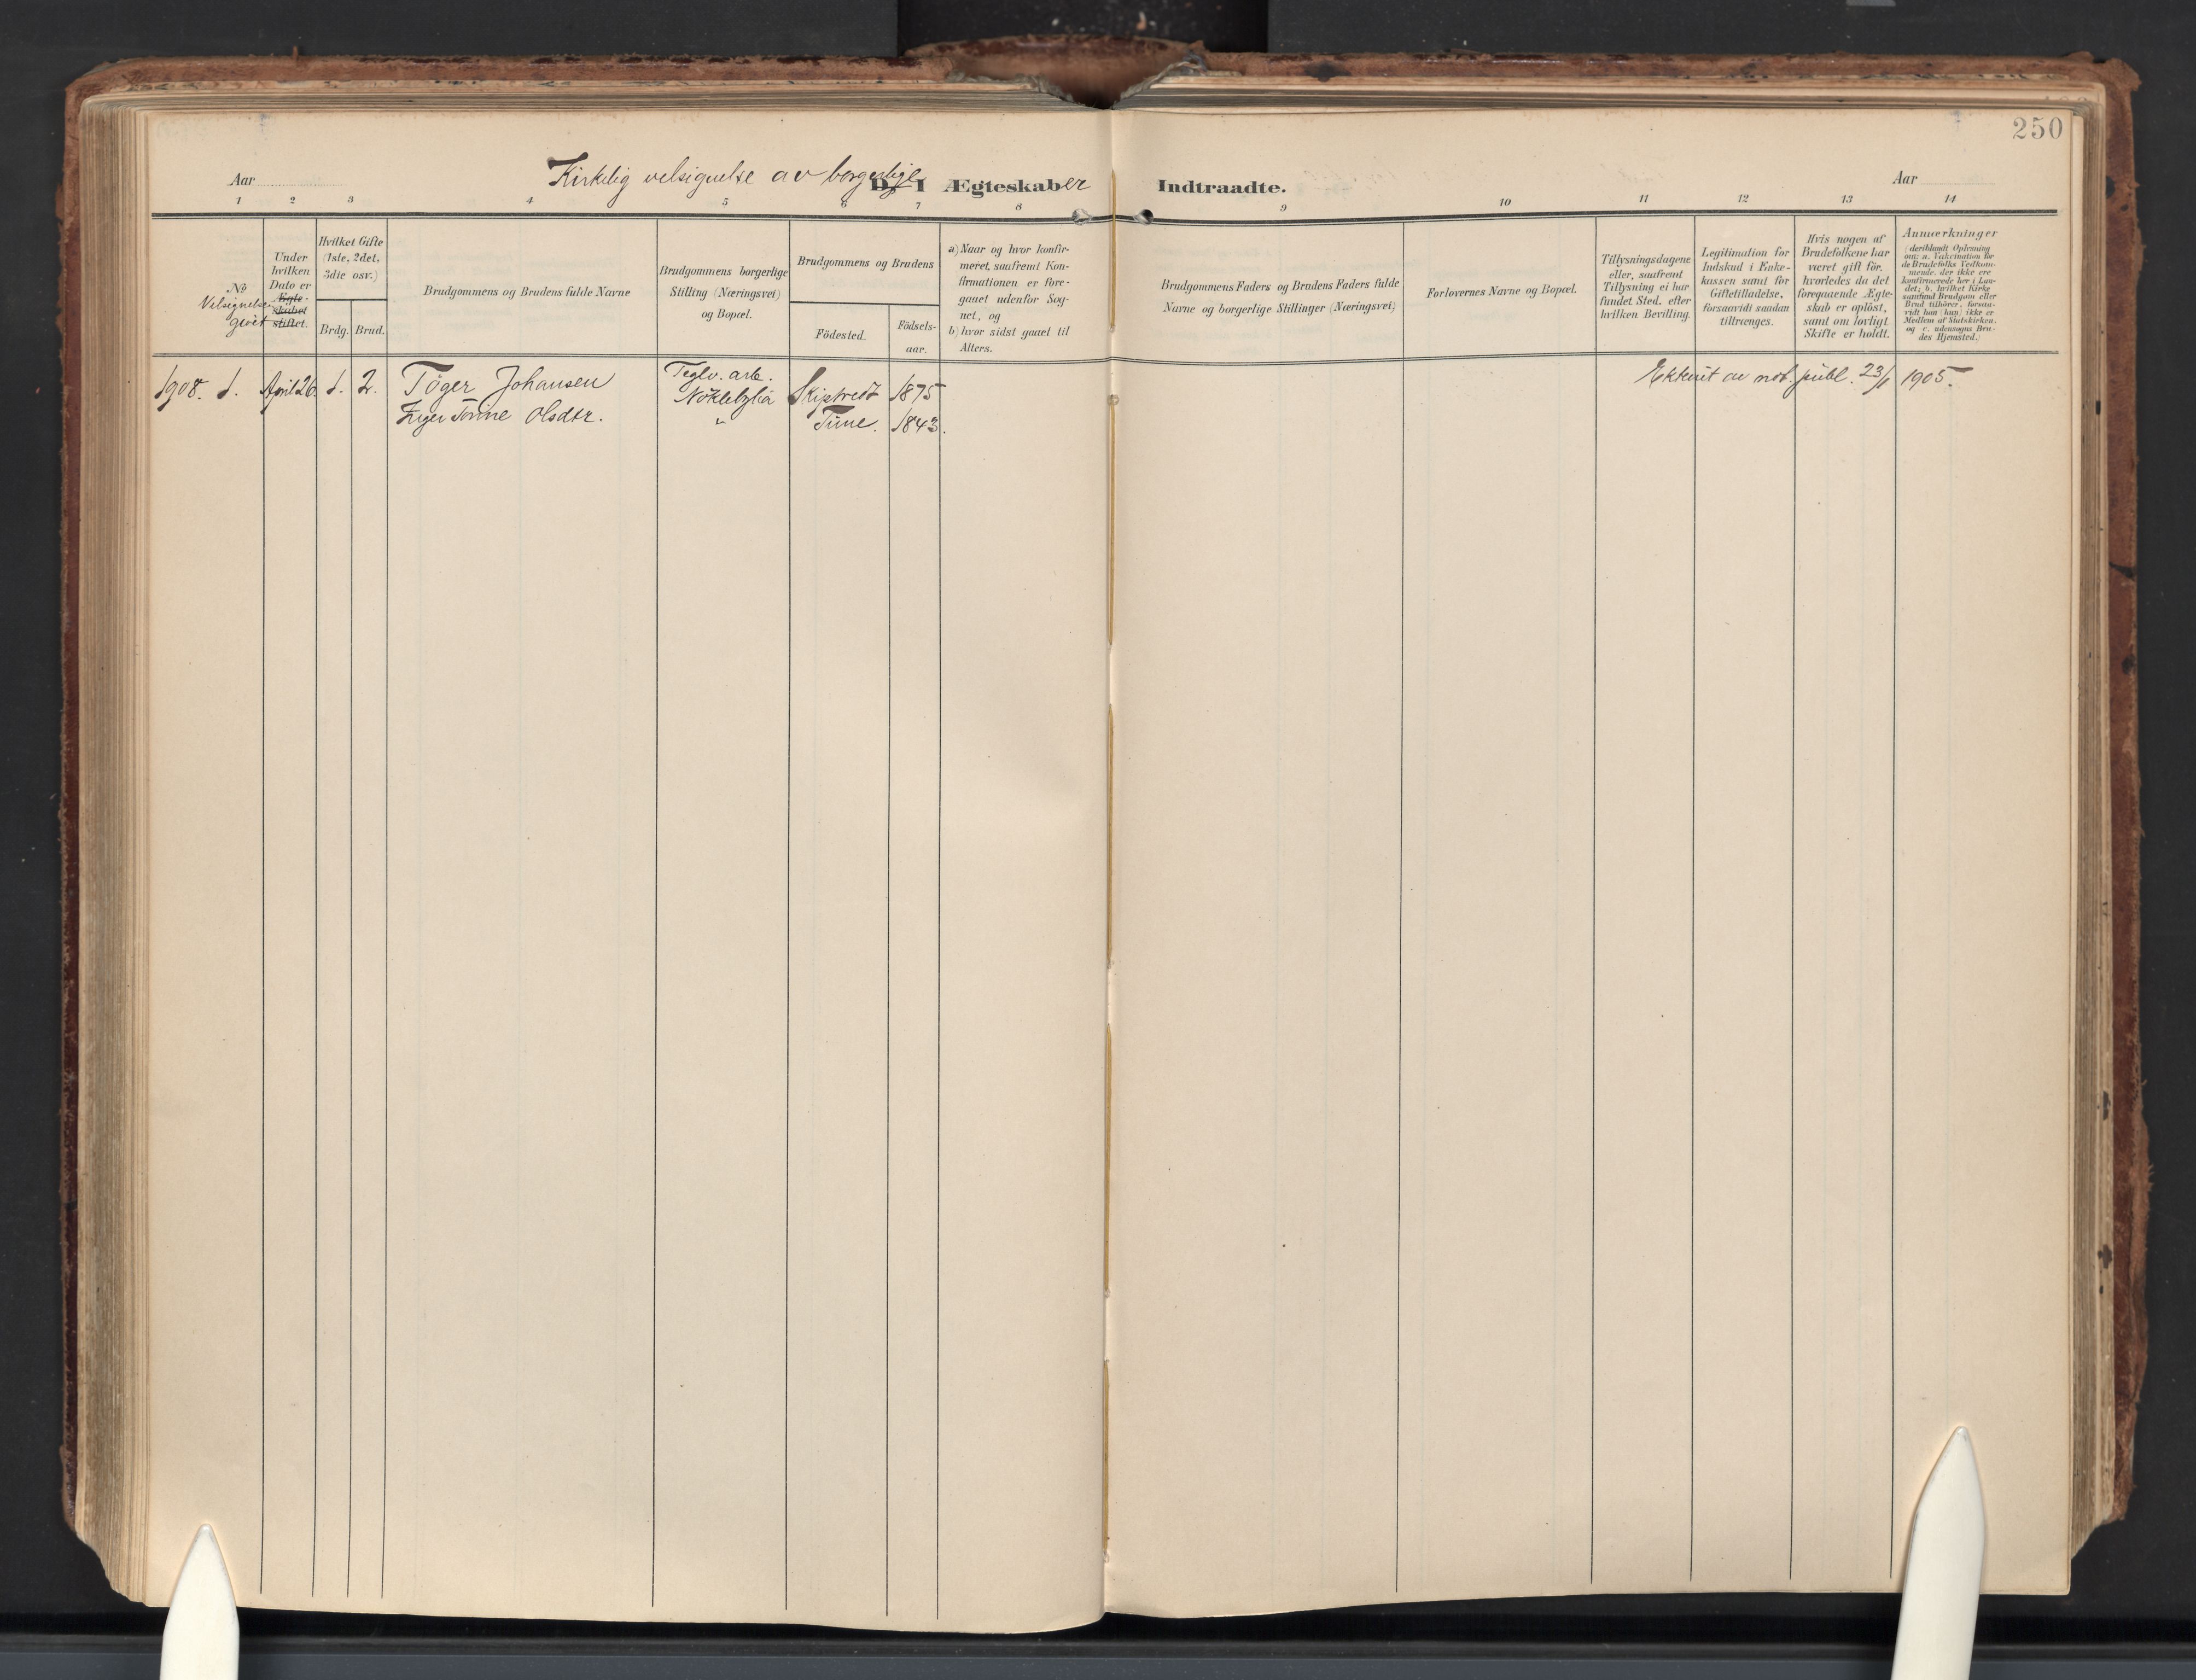 250
Aar
Kirkelig velsignelse av borgerlige
D. I Ægteskaber Indtraadte.
Aar
1 2 3 4 5 6 7 8 9 10 11 12 13 14
No
Velsignelse
givet
Under
hvilken
Dato er
Ægte-
skabet
stiftet.
Hvilket Gifte
(1ste, 2det,
3die osv.)
Brdg. Brud.
Brudgommens og Brudens fulde Navne
Brudgommens borgerlige
Stilling (Næringsvei)
og Bopæl.
Brudgommens og Brudens
Födested.
Födsels-
aar.
a) Naar og hvor konfir-
meret, saafremt Kon-
firmationen er fore-
gaaet udenfor Sog-
net, og
b) hvor sidst gaaet til
Alters.
Brudgommens Faders og Brudens Faders fulde
Navne og borgerlige Stillinger (Næringsvei)
Forlovernes Navne og Bopæl.
Tillysningsdagene
eller, saafremt
Tillysning ei har
fundet Sted, efter
hvilken Bevilling.
Legitimation for
Indskud i Enke-
kassen samt for
Giftetilladelse,
forsaavidt saadan
tiltrænges.
Hvis nogen af
Brudefolkene har
været gift för,
hvorledes da det
foregaaende Ægte-
skab er oplöst,
samt om lovligt
Skifte er holdt.
Anmærkninger
(deriblandt Oplysning
om: a. Vaccination for
de Brudefolks Vedkom-
mende, der ikke ere
konfirmerede her i Lan-
det; b. hvilket Kirke
samfund Brudgom eller
Brud tilhörer, forsaa-
vidt han (hun) ikke er
Medlem af Statskirken,
og c. udensogns Bru-
des Hjemsted.)
1908. 1. April 26. 1. 2. Töger Johansen Teglv. arb. Skiptvedt 1875 av not. publ. 23/1 1905.
Nöklebylia
Inger Torine Olsdtr. " Tune. 1843.